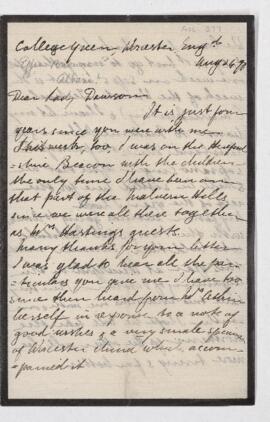 College Green, Worcester, Engd.
Aug 26 9
Dear Lady Dawson
It is just four
years since you were with me
This week, too, I was on the
shire Beacon with the children
the only time I have been on
that part of the Malvern Hills
since we were all there together
as Mrs Hastings guests.
Many thanks for your letter
I was glad to hear all the par-
ticulars you give me I have too
since then heard from Mrs
herself in response to a note of
good wishes & a very small specimen
of Worcester china which accom-
panied it